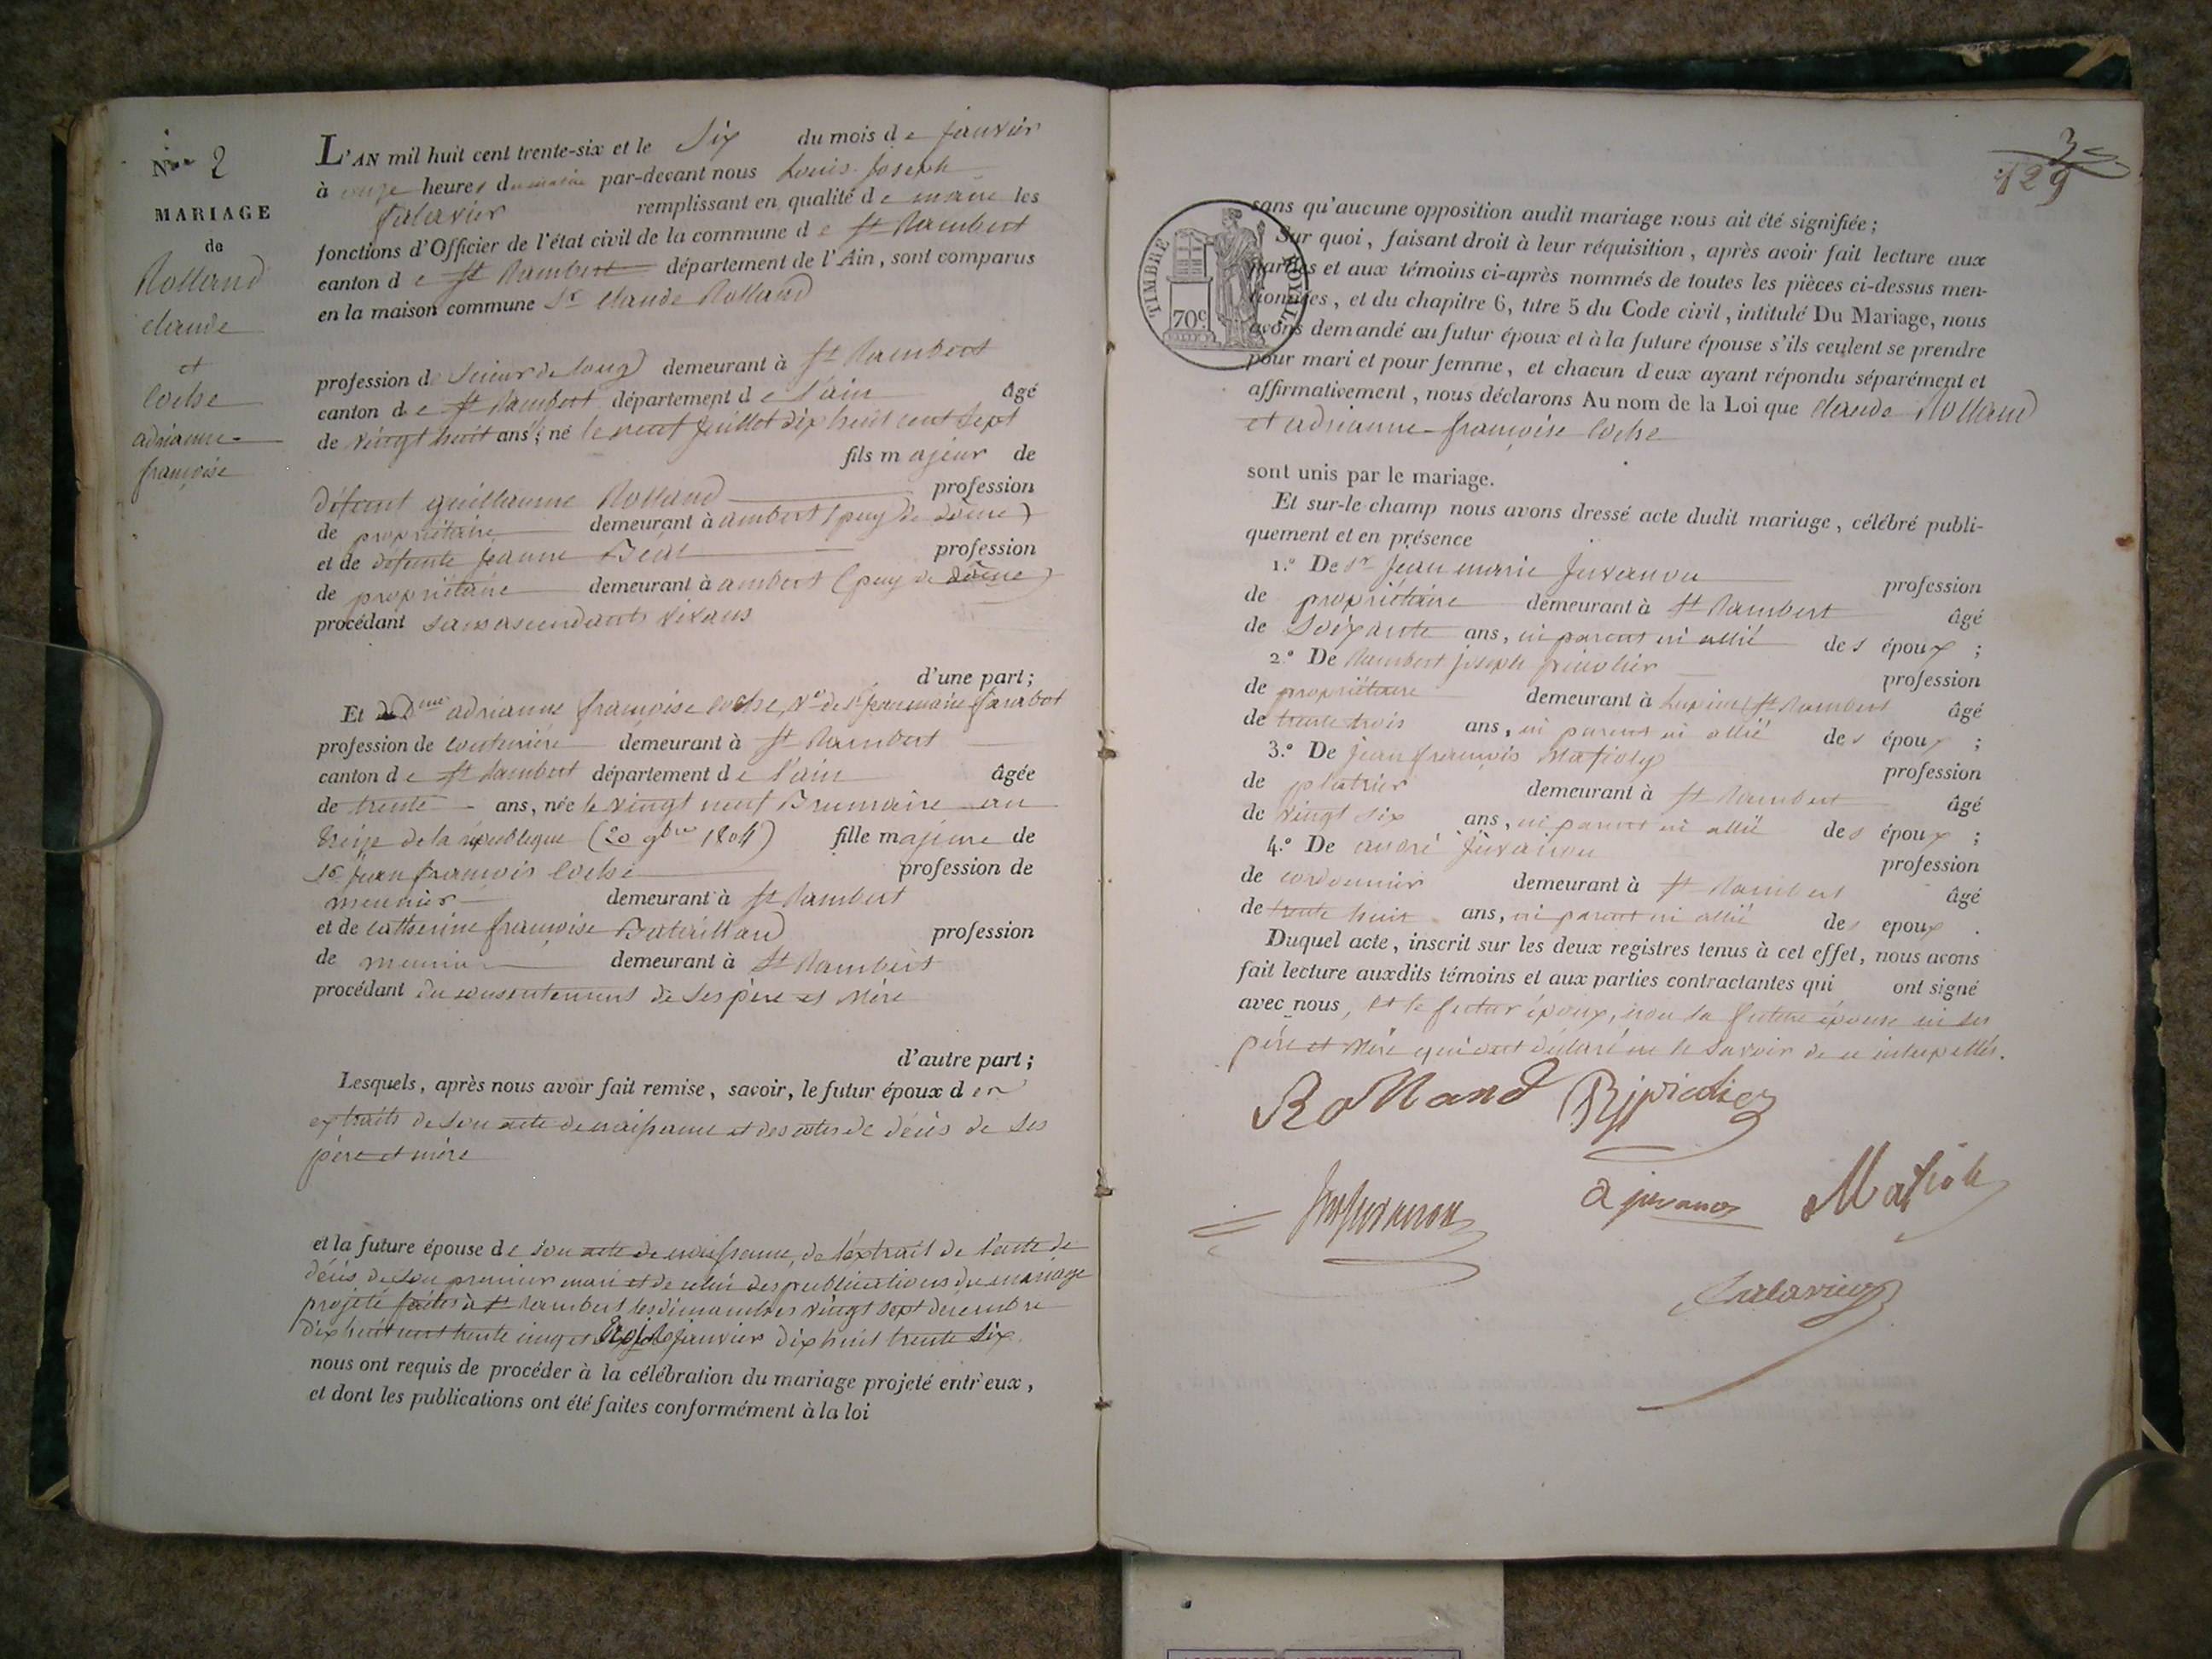 N° 2
MARIAGE
de
Rolland
claude
et
Coche
adrianne-
françoise
L'AN mil huit cent trente-six et le Six du mois de janvier
à onze heures du matin par-devant nous Louis-Joseph
remplissant en qualité de maire les
fonctions d'Officier de l'état civil de la commune de St Rambert
canton de St Rambert département de l'Ain, sont comparus
en la maison commune Sr Claude Rolland
profession de Scieur de long demeurant à St Rambert
canton de St Rambert département de l'ain âgé
de vingt huit ans, né le neuf juillet dix huit cent sept
fils majeur de
défunt guillaume Rolland profession
de propriétaire demeurant à ambert (puy de dôme)
et de défunte jeanne profession
de propriétaire demeurant à ambert (puy de dôme)
procédant sans ascendants vivans
d'une part;
Et Dme adrianne françoise Coche, Ve de Sr jean marie
profession de couturière demeurant à St Rambert
canton de St Rambert département de l'ain âgée
de trente ans, née le vingt neuf Brumaire an
treize de la république (20 9bre 1804) fille majeure de
Sr Jean françois Coche profession de
meunier demeurant à St Rambert
et de catherine françoise profession
de meunier demeurant à St Rambert
procédant du consentement de Ses père et Mère
d'autre part;
Lesquels, après nous avoir fait remise, savoir, le futur époux des
extraits de son acte de naissance et des actes de décès de Ses
père et mère
et la future épouse de son acte de naissance, de l'extrait de l'acte de
décès de son premier mari et de celui des publications du mariage
projeté faites à St Rambert les dimanches vingt sept décembre
dix huit cent trente cinq et trois janvier dix huit trente Six
nous ont requis de procéder à la célébration du mariage projeté entr'eux,
et dont les publications ont été faites conformément à la loi
129
TIMBRE ROYAL
70c.
sans qu'aucune opposition audit mariage nous ait été signifiée;
Sur quoi, faisant droit à leur réquisition, après avoir fait lecture aux
parties et aux témoins ci-après nommés de toutes les pièces ci-dessus men-
tionnées, et du chapitre 6, titre 5 du Code civil, intitulé Du Mariage, nous
avons demandé au futur époux et à la future épouse s'ils veulent se prendre
pour mari et pour femme, et chacun d'eux ayant répondu séparément et
affirmativement, nous déclarons Au nom de la Loi que Claude Rolland
et adrianne-françoise Coche
sont unis par le mariage.
Et sur-le-champ nous avons dressé acte dudit mariage, célébré publi-
quement et en présence
1.° De Sr Jean marie Juvanon profession
de propriétaire demeurant à St Rambert âgé
de Soixante ans, ni parent ni allié des époux;
2.° De Rambert joseph profession
de propriétaire demeurant à St Rambert âgé
de trente trois ans, ni parent ni allié des époux;
3.° De jean françois profession
de platrier demeurant à St Rambert âgé
de vingt Six ans, ni parent ni allié des époux;
4.° De andré Juvanon profession
de cordonnier demeurant à St Rambert âgé
de trente huit ans, ni parent ni allié des epoux.
Duquel acte, inscrit sur les deux registres tenus à cet effet, nous avons
fait lecture auxdits témoins et aux parties contractantes qui ont signé
avec nous, et le futur époux, non la future épouse ni ses
père et Mère qui ont déclaré ne le Savoir de ce interpellés.
Rolland
a juvanon